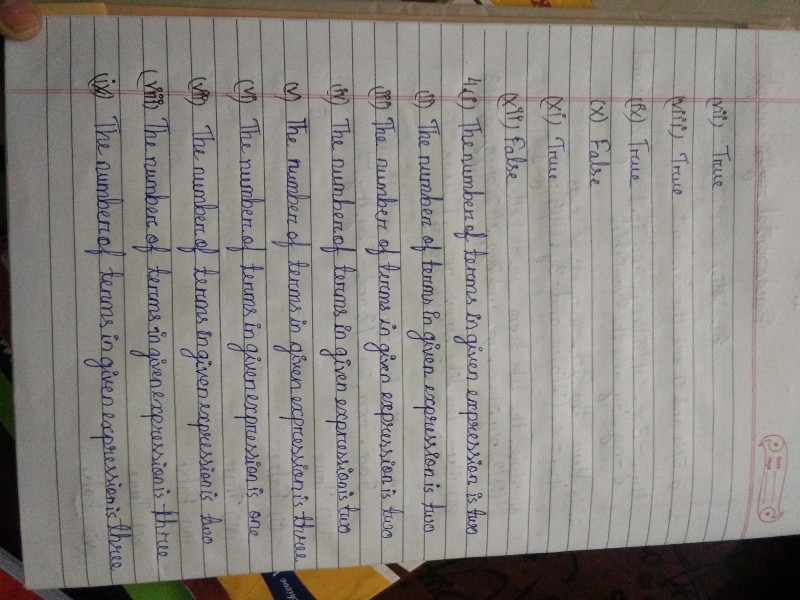 Date
Page
(vii) True
(viii) True
(ix) True
(x) False
(xi) True
(xii) False
4.(i) The number of terms in given expression is two
(ii) The number of terms in given expression is two
(iii) The number of terms in given expression is two
(iv) The number of terms in given expression is two
(v) The number of terms in given expression is three
(vi) The number of terms in given expression is one
(vii) The number of terms in given expression is two
(viii) The number of terms in given expression is three
(ix) The number of terms in given expression is three